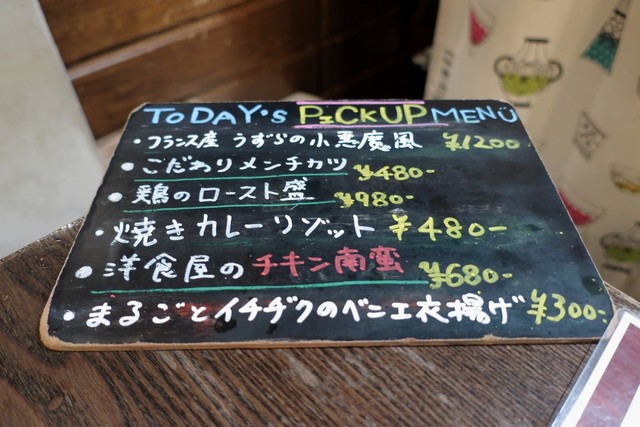 TODAY'S PiCKUP MENU
・フランス産 うずらの小悪魔風 ¥1200
・こだわりメンチカツ ¥480-
・鶏のロースト盛 ¥980-
・焼きカレーリゾット ¥480-
・洋食屋のチキン南蛮 ¥680-
・まるごとイチヂクのベニエ衣揚げ ¥300-